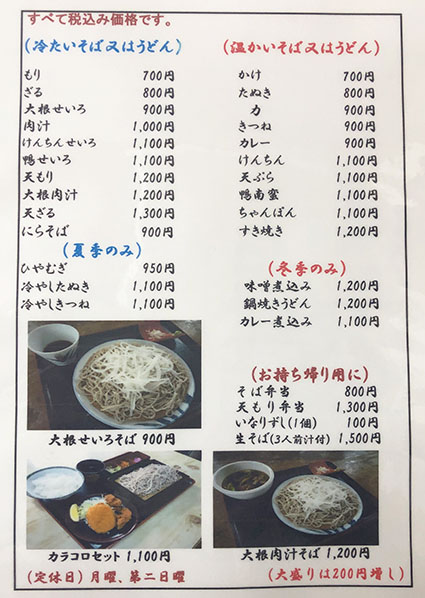 すべて税込み価格です。
(冷たいそば又はうどん)
もり 700円
ざる 800円
大根せいろ 900円
肉汁 1,000円
けんちんせいろ 1,100円
鴨せいろ 1,100円
天もり 1,200円
大根肉汁 1,200円
天ざる 1,300円
にらそば 900円
(夏季のみ)
ひやむぎ 950円
冷やしたぬき 1,100円
冷やしきつね 1,100円
大根せいろそば 900円
カラコロセット 1,100円
(定休日) 月曜、第二日曜
(温かいそば又はうどん)
かけ 700円
たぬき 800円
力 900円
きつね 900円
カレー 900円
けんちん 1,100円
天ぷら 1,100円
鴨南蛮 1,100円
ちゃんぽん 1,100円
すき焼き 1,200円
(冬季のみ)
味噌煮込み 1,200円
鍋焼きうどん 1,200円
カレー煮込み 1,100円
(お持ち帰り用に)
そば弁当 800円
天もり弁当 1,300円
いなりずし(1個) 100円
生そば(3人前汁付) 1,500円
大根肉汁そば 1,200円
(大盛りは200円増し)